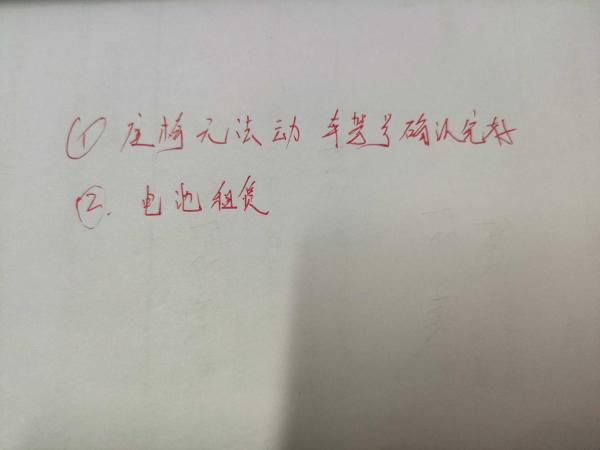 ① 座椅无法动 车架号确认完好
②. 电池租赁